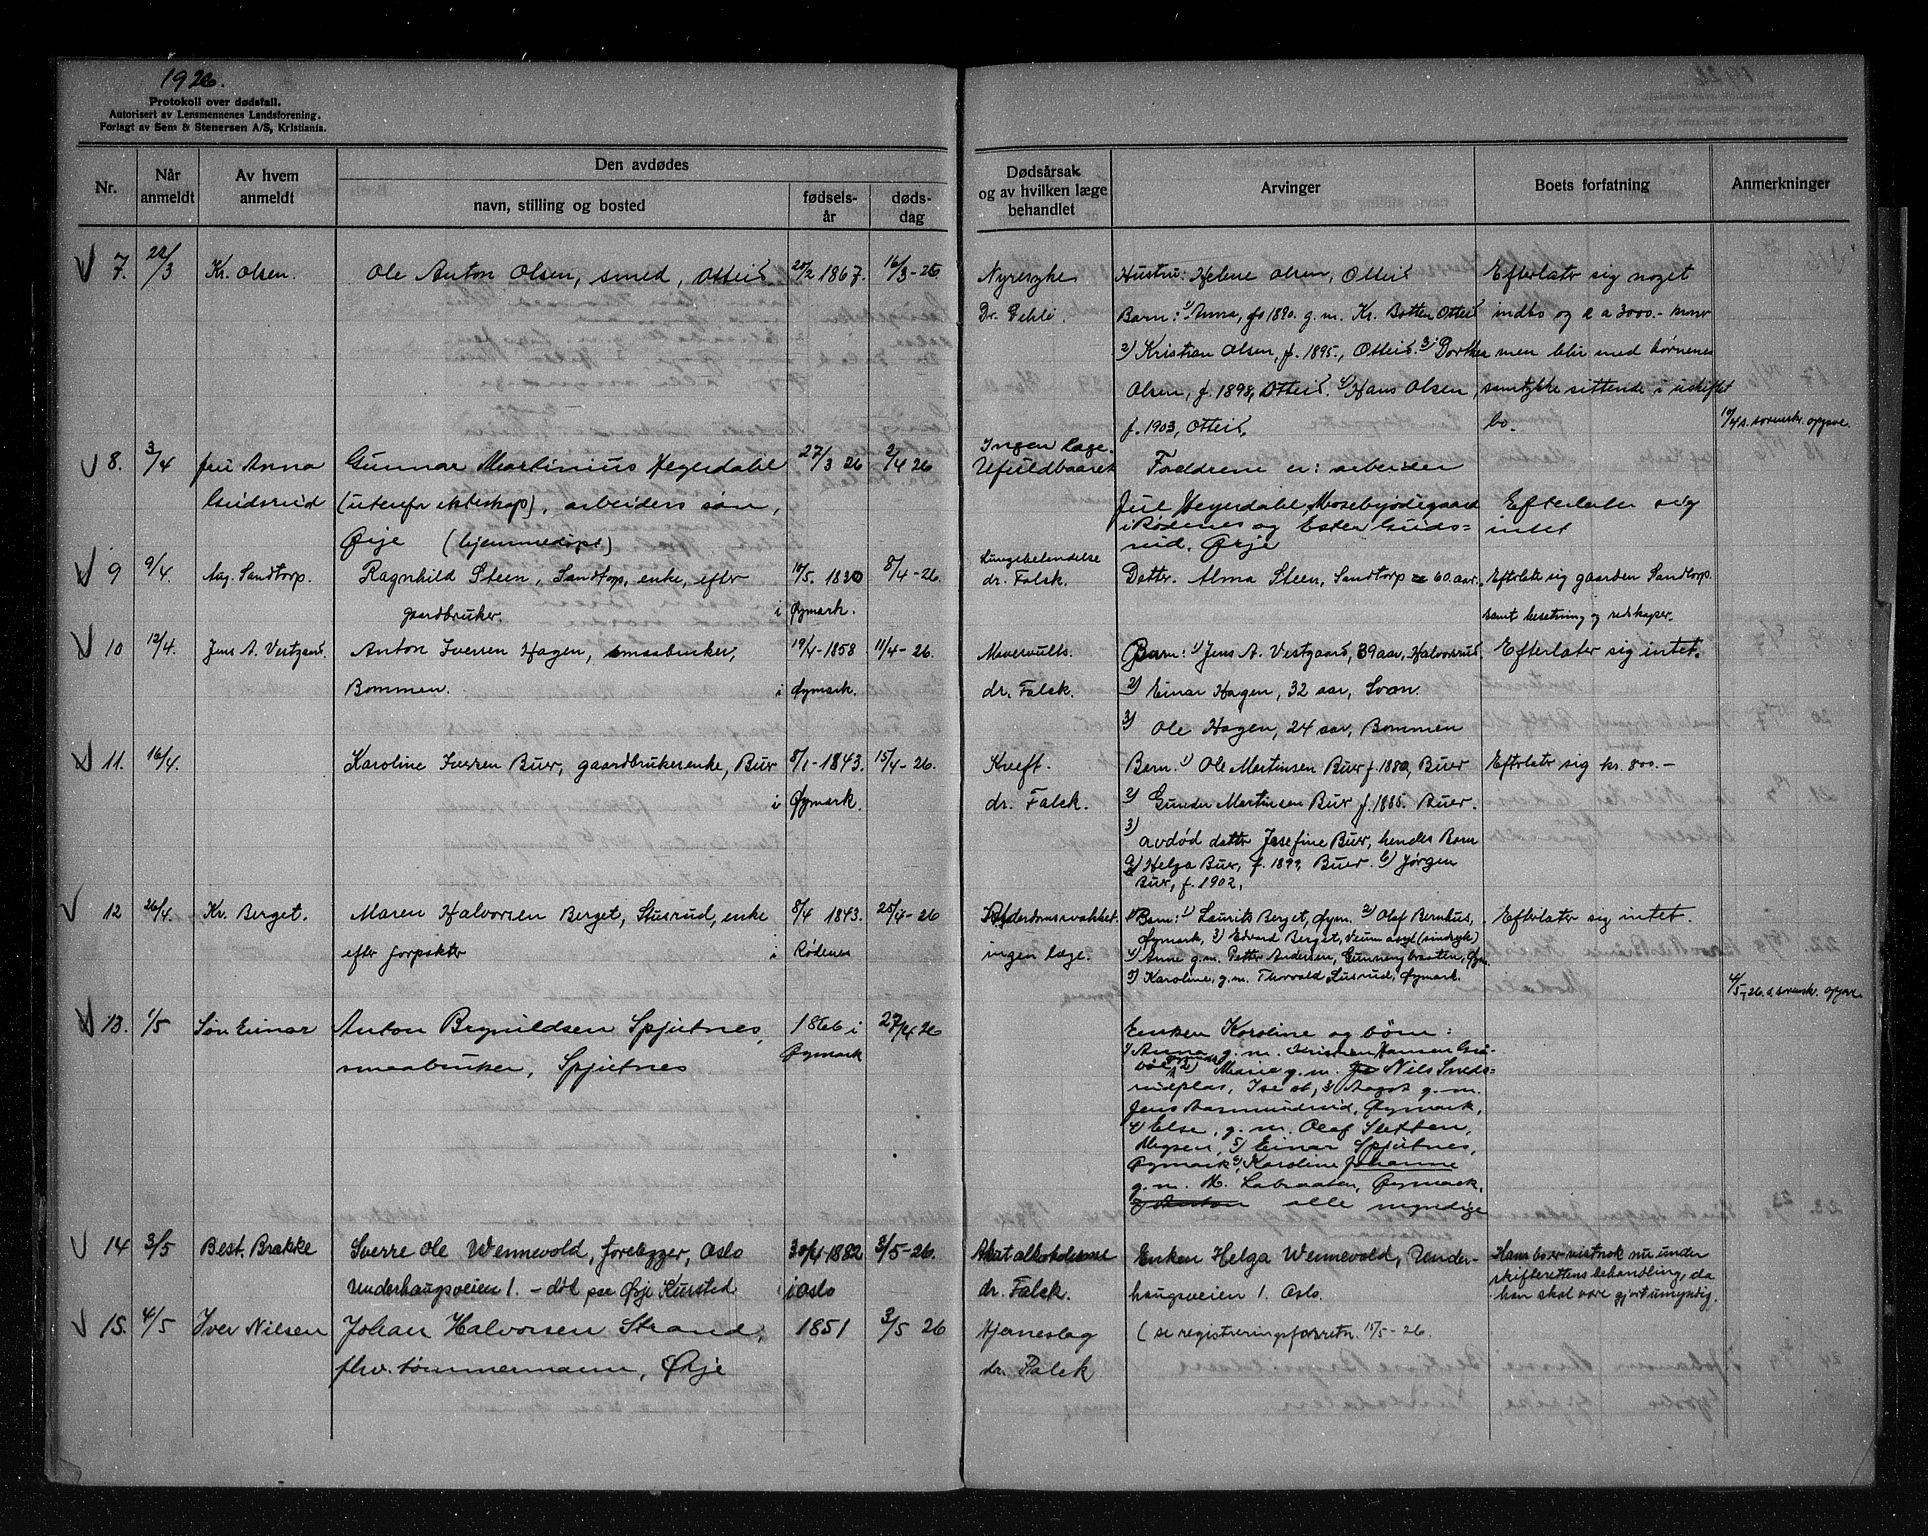 1926.
Protokoll over dødsfall.
Autorisert av Lensmennenes Landsforening.
Forlagt av Sem & Stenersen A/S, Kristiania.
Nr.
Når anmeldt
Av hvem anmeldt
Den avdødes
navn, stilling og bosted
fødsels-år
døds-dag
Dødsårsak og av hvilken læge behandlet
Arvinger
Boets forfatning
Anmerkninger
7. 22/3 Kr. Olsen. Ole Anton Olsen, smed, Otteid 20/2 1867. 16/3-26
Nyresyke
Dr. Gehli
Hustru: Helene Olsen, Otteid
Barn: 1) Anna, f. 1890. g.m. Kr. Botten Otteid
2) Kristian Olsen, f. 1895, Otteid. 3) Dorthea
Olsen, f. 1898, Otteid. 4) Hans Olsen,
f. 1903, Otteid.
Efterlater sig noget
indbo og ca 3000.- kroner
men blir med børnenes
samtykke sittende i uskiftet
bo.
10/4 s. svensk. opgave.
8. 3/4 fru Anna
Gudsrud
Gunnar Martinius Hegerdahl
(utenfor ekteskap), arbeiders søn,
Ørje (hjemmedøpt)
27/3 26 2/4 26
Ingen læge.
Ufuldbaaret
Foreldrene er: arbeider
Jul Hegerdahl, Mosebyødegaard
i Rødenes og Ester Guds-
rud. Ørje
Efterlater sig
intet
9 9/4. Aag. Sandtorp. Ragnhild Steen, Sandtorp, enke, efter
gaardbruker. i
10/5. 1830
Øymark.
8/4-26.
Lungebetendelse
dr. Falsk.
Datter. Alma Steen, Sandtorp 60 aar.
Efterlater sig gaarden Sandtorp
samt besetning og redskaper.
10 12/4. Jens A. Vestgaard. Anton Iversen Hagen, smaabruker,
Bommen. i
19/4-1858
Øymark.
11/4-26.
Mavesvulst.
dr. Falsk.
Barn: 1) Jens A. Vestgaard, 39 aar, Halvorsrud
2) Einar Hagen, 32 aar,
3) Ole Hagen, 24 aar, Bommen
Efterlater sig intet.
11. 16/4. Karoline Iversen Buer, gaardbrukerenke, Buer
i
8/1-1843.
Øymark.
15/4-26.
Kreft.
dr. Falsk.
Barn. 1) Ole Martinsen Buer f. 1880, Buer
2) Gunder Martinsen Buer f. 1885. Buer.
3) avdød datter Josefine Buer, hendes Barn
a) Helga Buer, f. 1899, Buer. b) Jørgen
Buer, f. 1902.
Efterlater sig kr. 800.-
12 26/4. Kr. Berget. Maren Halvorsen Berget, Stusrud, enke
efter forpakter i
8/4 1843.
Rødenes
25/4-26
Alderdomssvakhet.
ingen læge.
Barn: 1) Laurits Berget, Øym. 2) Olaf Bernhus,
Øymark, 3) Edvard Berget, Veum asyl (sindsyk)
4) Anne g.m. Petter Andersen, Gunnengbraaten, Øym.
5) Karoline, g.m. Thorvald Susrud, Øymark.
Efterlater sig intet.
4/5-26. s. svensk. opgave.
13. 1/5 Søn Einar Anton Brynildsen Spjutnes,
smaabruker, Spjutnes
1866 i
Øymark
27/4 26
Enken Karoline og børn:
1) Anna g.m. Kristian Hansen Grå-
bøl, 2) Marie g.m. Nils Sneds-
rudplas, Ise st, 3) Aagot g.m.
Jens Aasmundrud, Øymark,
4) Else, g.m. Olaf Sletten,
Mysen, 5) Einar Spjutnes,
Øymark 6) Karoline Johanne
g.m. M. Labraaten, Øymark.
alle myndige
14 3/5 Best. Brække Sverre Ole Wennevold, forlegger, Oslo
Underhaugsveien 1. - død paa Ørje Kursted
30/4 1882
i Oslo
3/5-26.
Akut alkoholisme
dr. Falsk.
Enken Helga Wennevold, Under-
haugsveien 1. Oslo.
Hans bo er vistnok nu under
skifterettens behandling, da
han skal være gjort umyndig.
15. 4/5 Iver Nilsen Johan Halvorsen Strand,
fhv. tømmermann, Ørje
1851 3/5 26
Hjerneslag
dr. Falsk
(se registreringsforretn. 15/5-26.